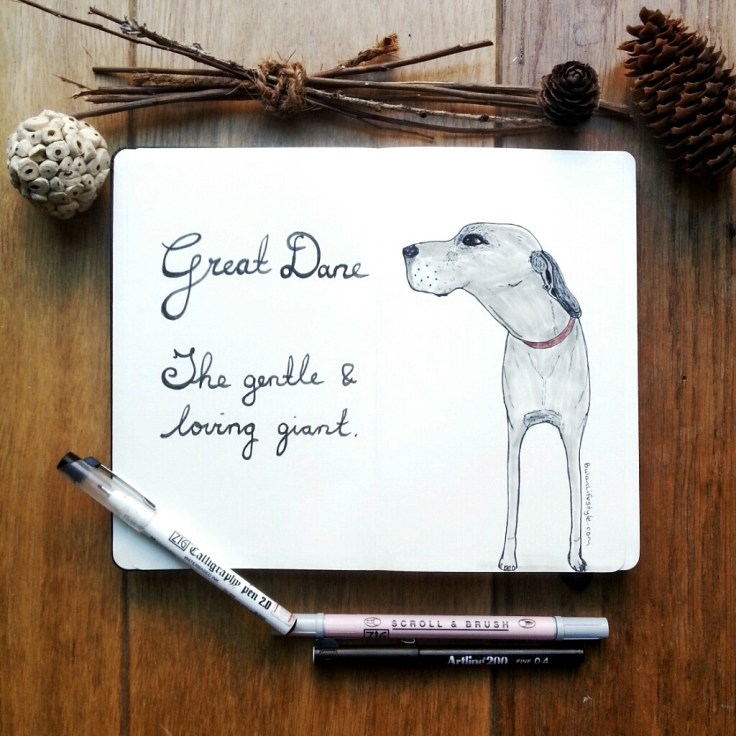 Great Dane
The gentle &
loving giant.
BwianLifestyle.com
ZIG Calligraphy pen 2.0
SCROLL & BRUSH
ZIG
Artline 200 FINE 0.4